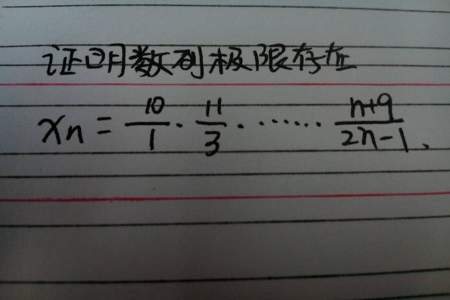 证明数列极限存在
xn = 10/1 · 11/3 · ······ n+9/2n-1、